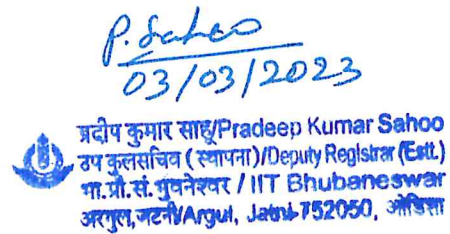 P. Sahoo
03/03/2023
प्रदीप कुमार साहू/Pradeep Kumar Sahoo
उप कुलसचिव (स्थापना)/Deputy Registrar (Estt.)
भा.प्रौ.सं. भुवनेश्वर / IIT Bhubaneswar
अरगुल, जटनी/Argul, Jatni-752050, ओडिशा